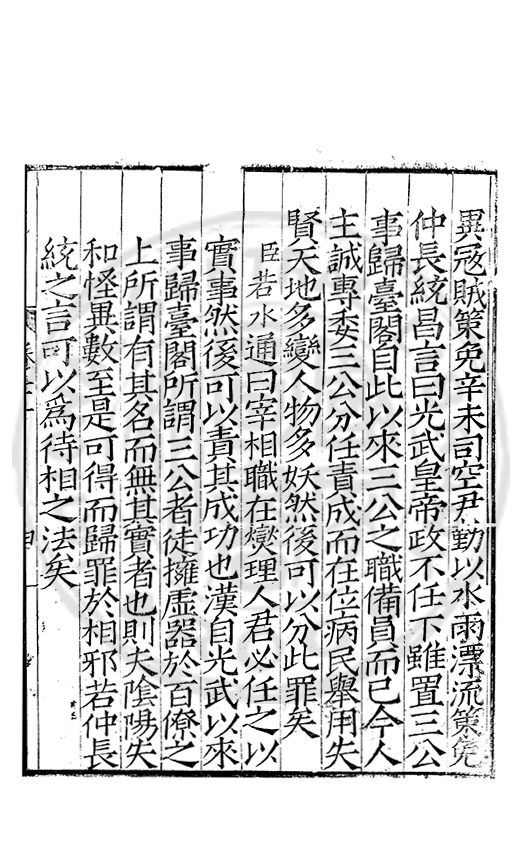 異冦賊策免辛未司空尹勤以水雨漂流策免
仲長統昌言曰光武皇帝政不任下雖置三公
事歸臺閣自此以來三公之職備員而已今人
主誠專委三公分任責成而在位病民舉用失
賢天地多變人物多妖然後可以分此罪矣
臣若水通曰宰相職在燮理人君必任之以
實事然後可以責其成功也漢自光武以來
事歸臺閣所謂三公者徒擁虛器於百僚之
上所謂有其名而無其實者也則夫隂陽失
和怪異數至是可得而歸罪於相邪若仲長
統之言可以爲待相之法矣